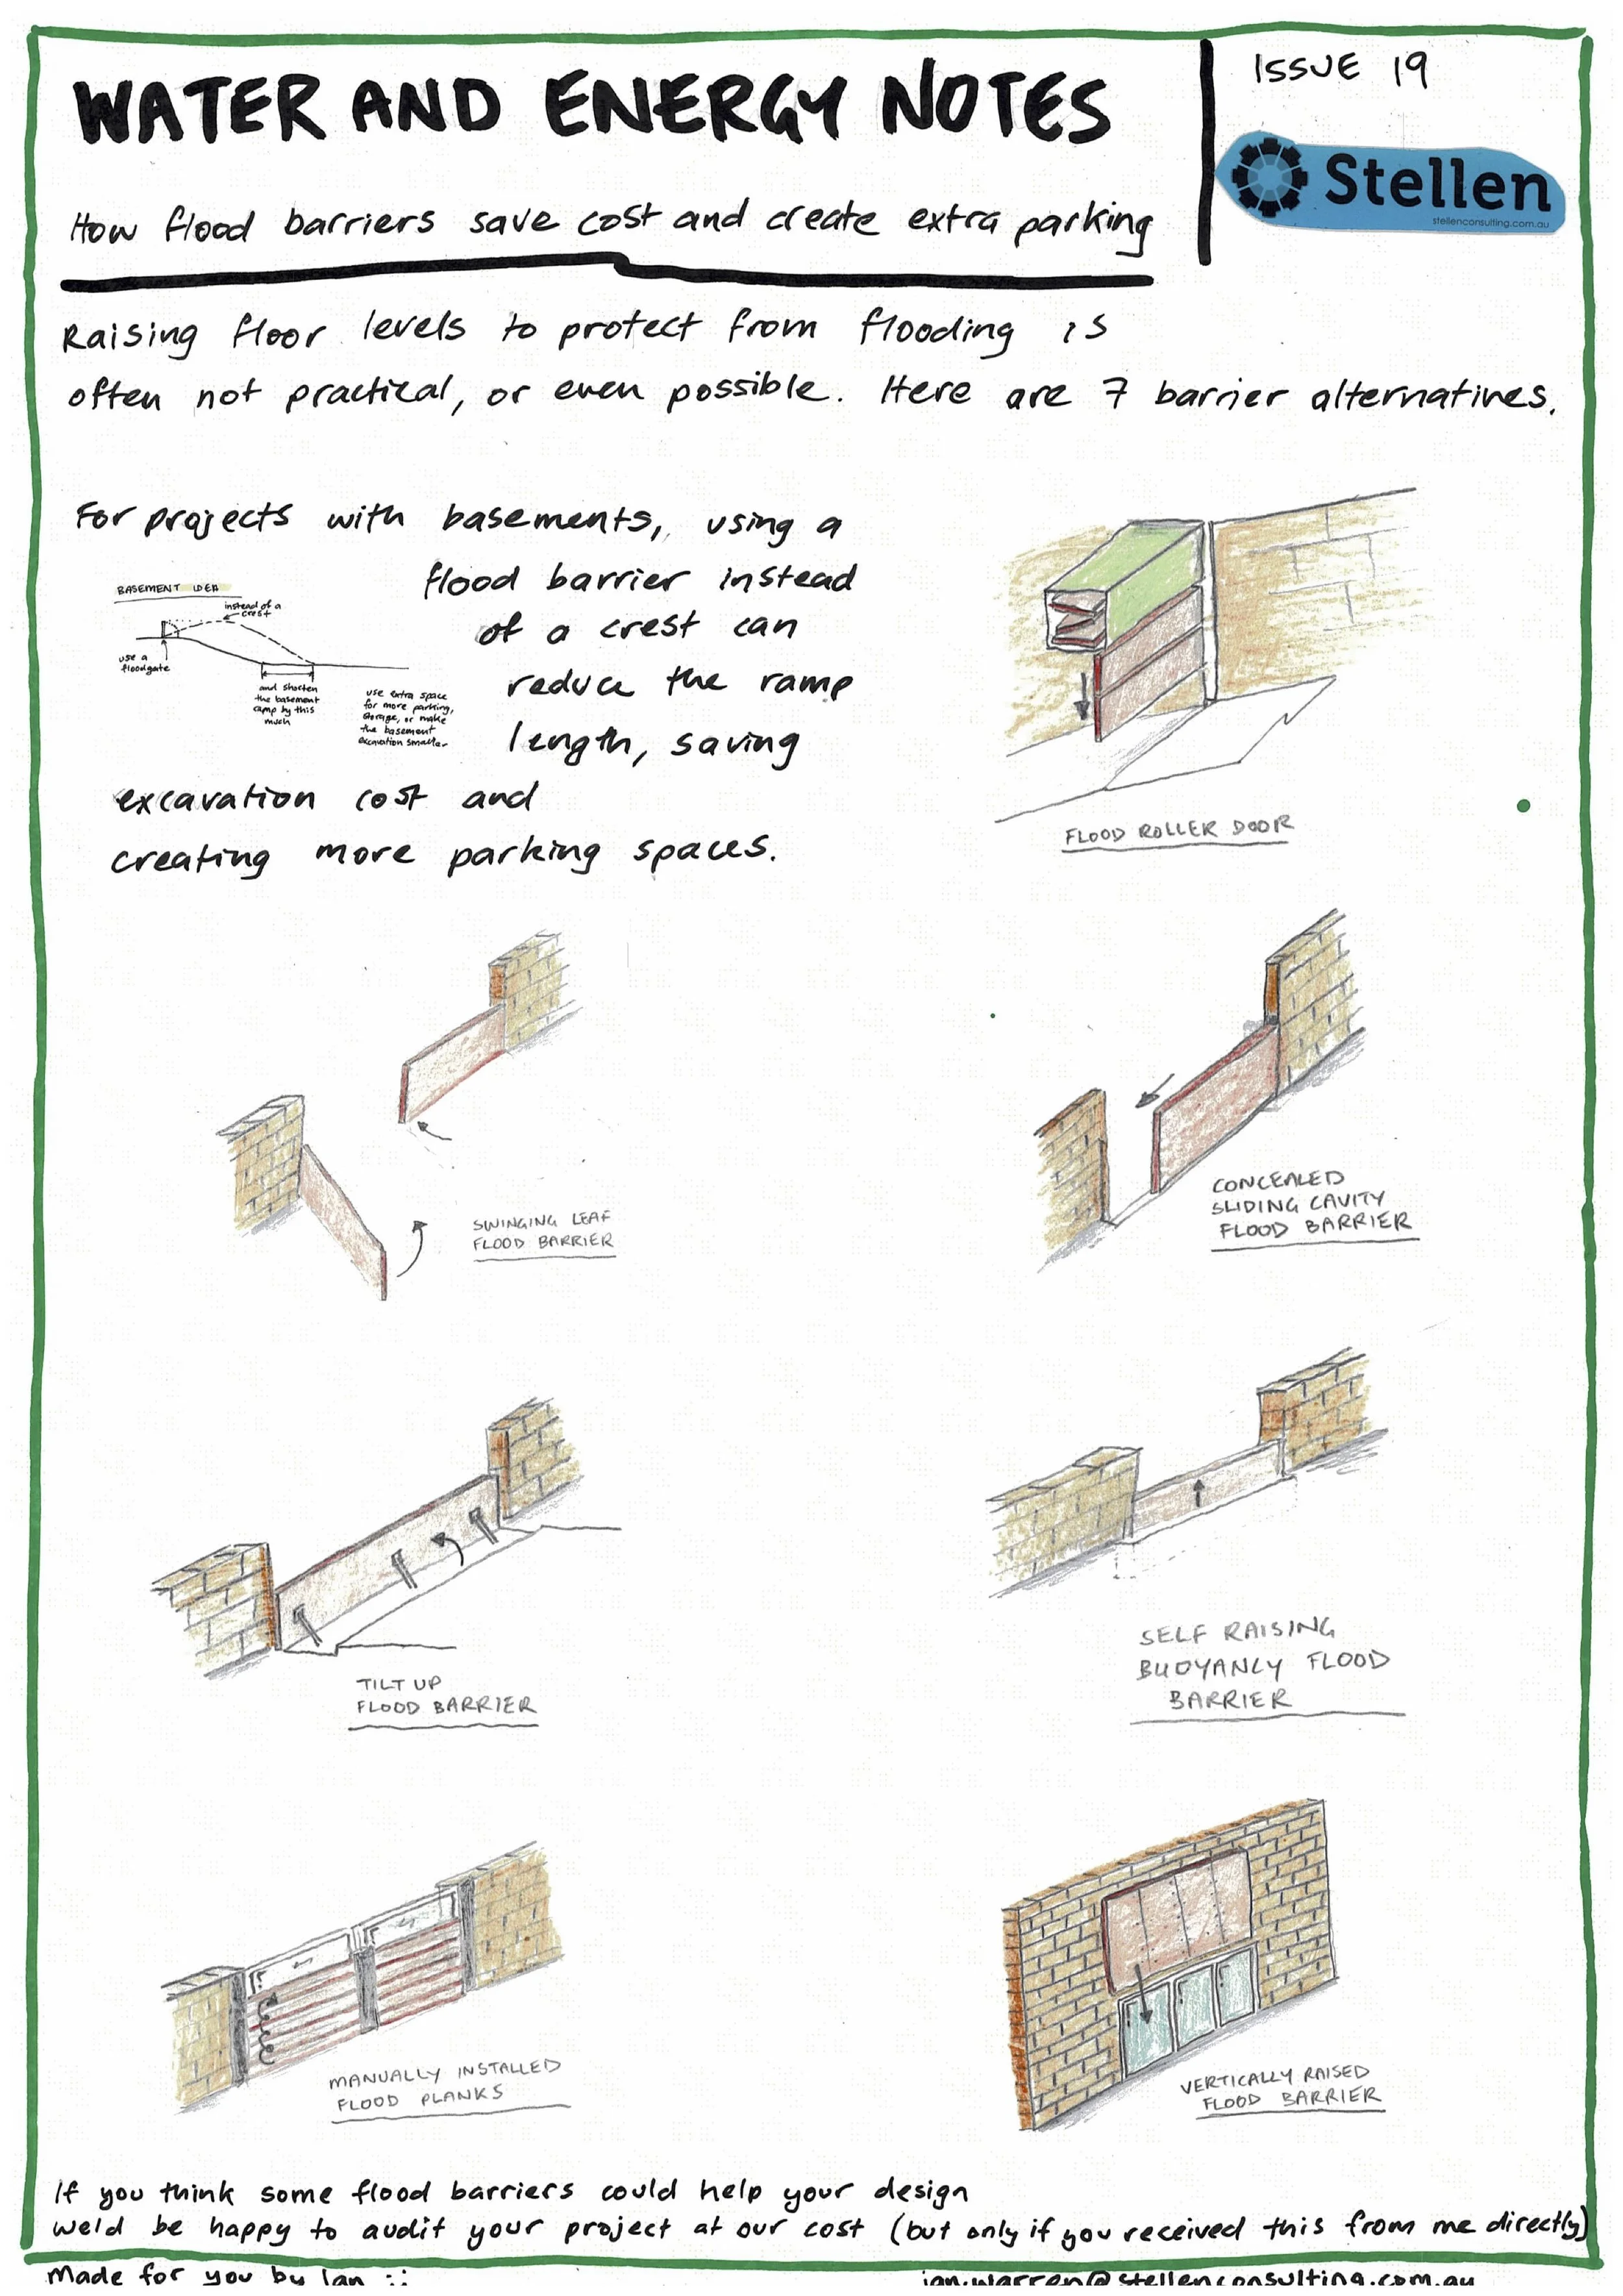 WATER AND ENERGY NOTES
ISSUE 19
Stellen
stellenconsulting.com.au
How flood barriers save cost and create extra parking
Raising floor levels to protect from flooding is
often not practical, or even possible. Here are 7 barrier alternatives.
For projects with basements, using a
flood barrier instead
of a crest can
reduce the ramp
length, saving
excavation cost and
creating more parking spaces.
BASEMENT IDEA
instead of a
crest
use a
floodgate
and shorten
the basement
ramp by this
much
use extra space
for more parking,
storage, or make
the basement
excavation smaller
FLOOD ROLLER DOOR
SWINGING LEAF
FLOOD BARRIER
CONCEALED
SLIDING CAVITY
FLOOD BARRIER
TILT UP
FLOOD BARRIER
SELF RAISING
BUOYANCY FLOOD
BARRIER
MANUALLY INSTALLED
FLOOD PLANKS
VERTICALLY RAISED
FLOOD BARRIER
If you think some flood barriers could help your design
we'd be happy to audit your project at our cost (but only if you received this from me directly)
Made for you by Ian :)
ian.warren@stellenconsulting.com.au